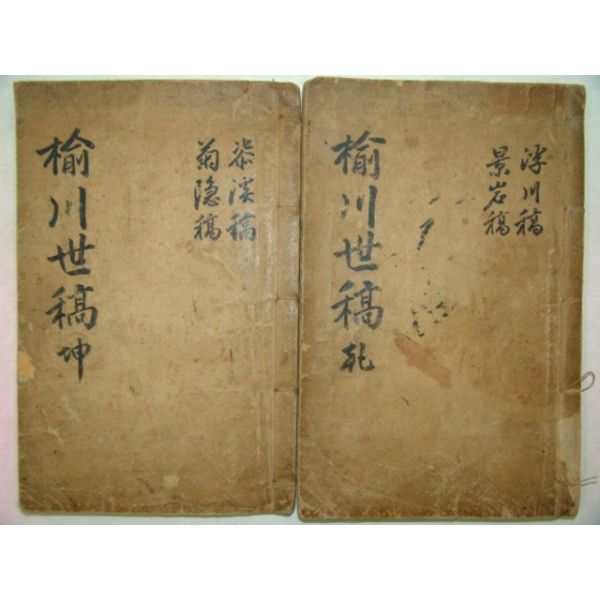 浮川稿
景岩稿
楡川世稿 乾
恭溪稿
菊隐稿
楡川世稿 坤